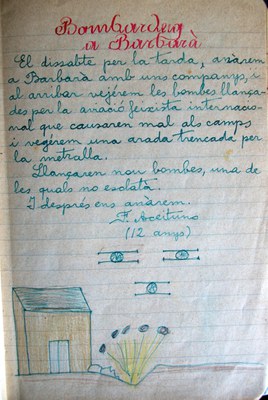 Bombardeig
a Barbarà
El dissabte per la tarda, anàrem
a Barbarà amb uns companys, i
al arribar vejérem les bombes llença-
des per la aviació feixista internacio-
nal que causaren mal als camps
i vegérem una arada trencada per
la metralla.
Llançaren nou bombes, una de
les quals no esclatà.
I després ens anàrem.
F. Aceituno
(12 anys)